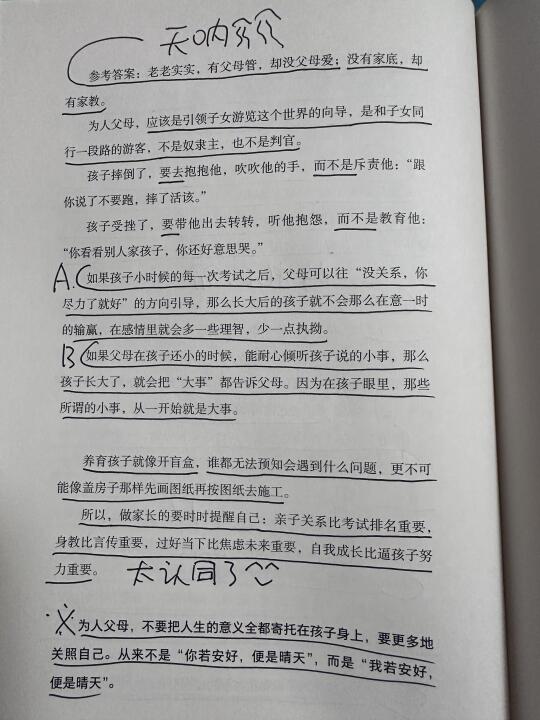 天呐
参考答案：老老实实，有父母管，却没父母爱；没有家底，却
有家教。
为人父母，应该是引领子女游览这个世界的向导，是和子女同
行一段路的游客，不是奴隶主，也不是判官。
孩子摔倒了，要去抱抱他，吹吹他的手，而不是斥责他：“跟
你说了不要跑，摔了活该。”
孩子受挫了，要带他出去转转，听他抱怨，而不是教育他：
“你看看别人家孩子，你还好意思哭。”
A. 如果孩子小时候的每一次考试之后，父母可以往“没关系，你
尽力了就好”的方向引导，那么长大后的孩子就不会那么在意一时
的输赢，在感情里就会多一些理智，少一点执拗。
B 如果父母在孩子还小的时候，能耐心倾听孩子说的小事，那么
孩子长大了，就会把“大事”都告诉父母。因为在孩子眼里，那些
所谓的小事，从一开始就是大事。
养育孩子就像开盲盒，谁都无法预知会遇到什么问题，更不可
能像盖房子那样先画图纸再按图纸去施工。
所以，做家长的要时时提醒自己：亲子关系比考试排名重要，
身教比言传重要，过好当下比焦虑未来重要，自我成长比逼孩子努
力重要。 太认同了
为人父母，不要把人生的意义全都寄托在孩子身上，要更多地
关照自己。从来不是“你若安好，便是晴天”，而是“我若安好，
便是晴天”。